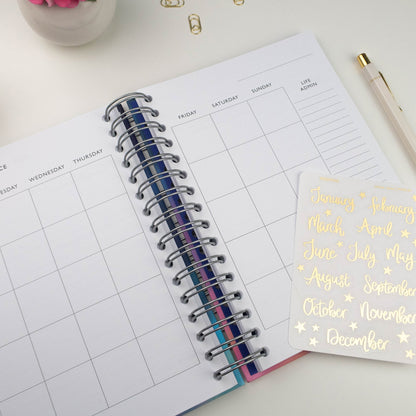 WEDNESDAY THURSDAY
FRIDAY SATURDAY SUNDAY LIFE
ADMIN
January February
March April
June July May
August September
October November
December